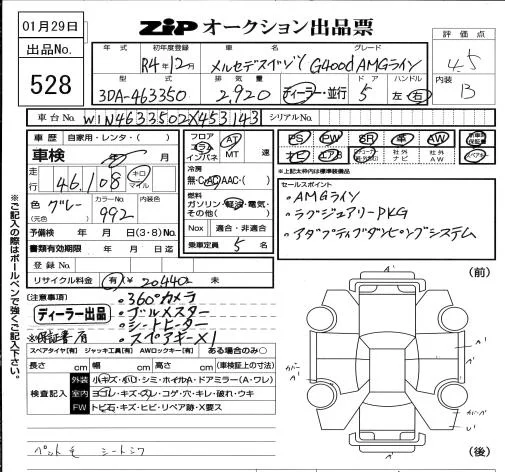 01月29日
ZIP オークション出品票
出品No.
528
評価点
4.5
内装
B
年式 初年度登録 車名 グレード
R4年12月 メルセデスベンツ G400d AMGライン
型式 排気量 ドア ハンドル
3DA-463350 2,920 ディーラー・並行 5 左・右
車台No. W1N4633502X453143 シリアルNo.
車歴 自家用・レンタ・( )
車検 年 月
走行 46,108 キロ マイル
色 グレー (元色) カラーNo. 992 内装色
予備検 年 月 日(3・8)No.
書類有効期限 年 月 日迄
登録No.
リサイクル料金 有 ¥ 20440 未
フロア コラム インパネ AT MT 速
冷房 無・C・AC・AAC・( )
燃料 ガソリン・軽油・電気・その他( )
Nox 適合・非適合
乗車定員 5 名
PS PW SR 革 AW 新車時保証書
ナビ エアB 社外ナビ 社外AW スペアキー
※上記太枠内は標準装備品
セールスポイント
・AMGライン
・ラグジュアリーPKG
・アダプティブダンピングシステム
(注意事項)
ディーラー出品
※保証書/有
・360°カメラ
・ブルメスター
・シートヒーター
・スペアキー×1
スペアタイヤ[有] ジャッキ工具[有] AWロックキー[有] ある場合のみ○
長さ cm 幅 cm 高さ cm (車検証上の寸法)
検査記入
外装 小キズ・小凹・シミ・ホイルA・ドアミラー(A・ワレ)
室内 ヨゴレ・キズ・スレ・コゲ・穴・キレ・破れ・ウキ
FW トビ石・キズ・ヒビ・リペア跡・X要ス
ペット毛 シートシワ
※ご記入の際はボールペンで強くご記入下さい。
(前)
(後)